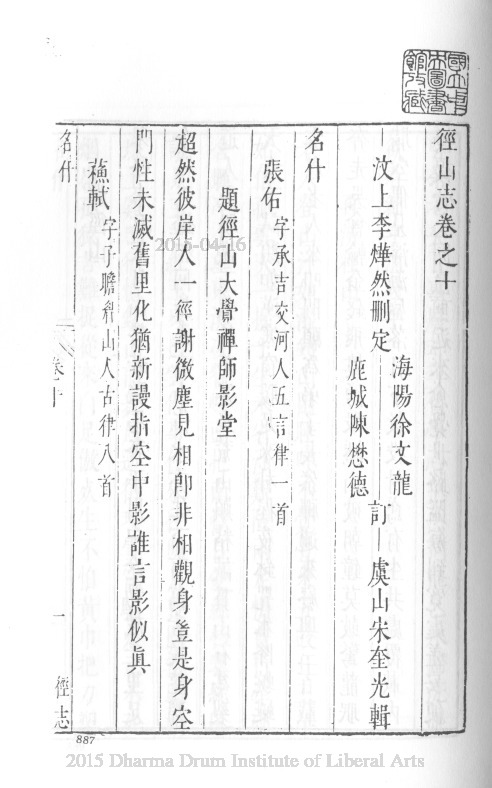 國立中央圖書館收藏
徑山志卷之十
汶上李燁然刪定
海陽徐文龍
鹿城陳懋德
訂
虞山宋奎光輯
名什
張佑字承吉交河人五言律一首
題徑山大覺禪師影堂
超然彼岸人一徑謝微塵見相卽非相觀身豈是身空
門性未滅舊里化猶新謾指空中影誰言影似眞
蘇軾字子瞻眉山人古律八首
名什
卷十
一
徑志
887
2015-04-16
2015 Dharma Drum Institute of Liberal Arts